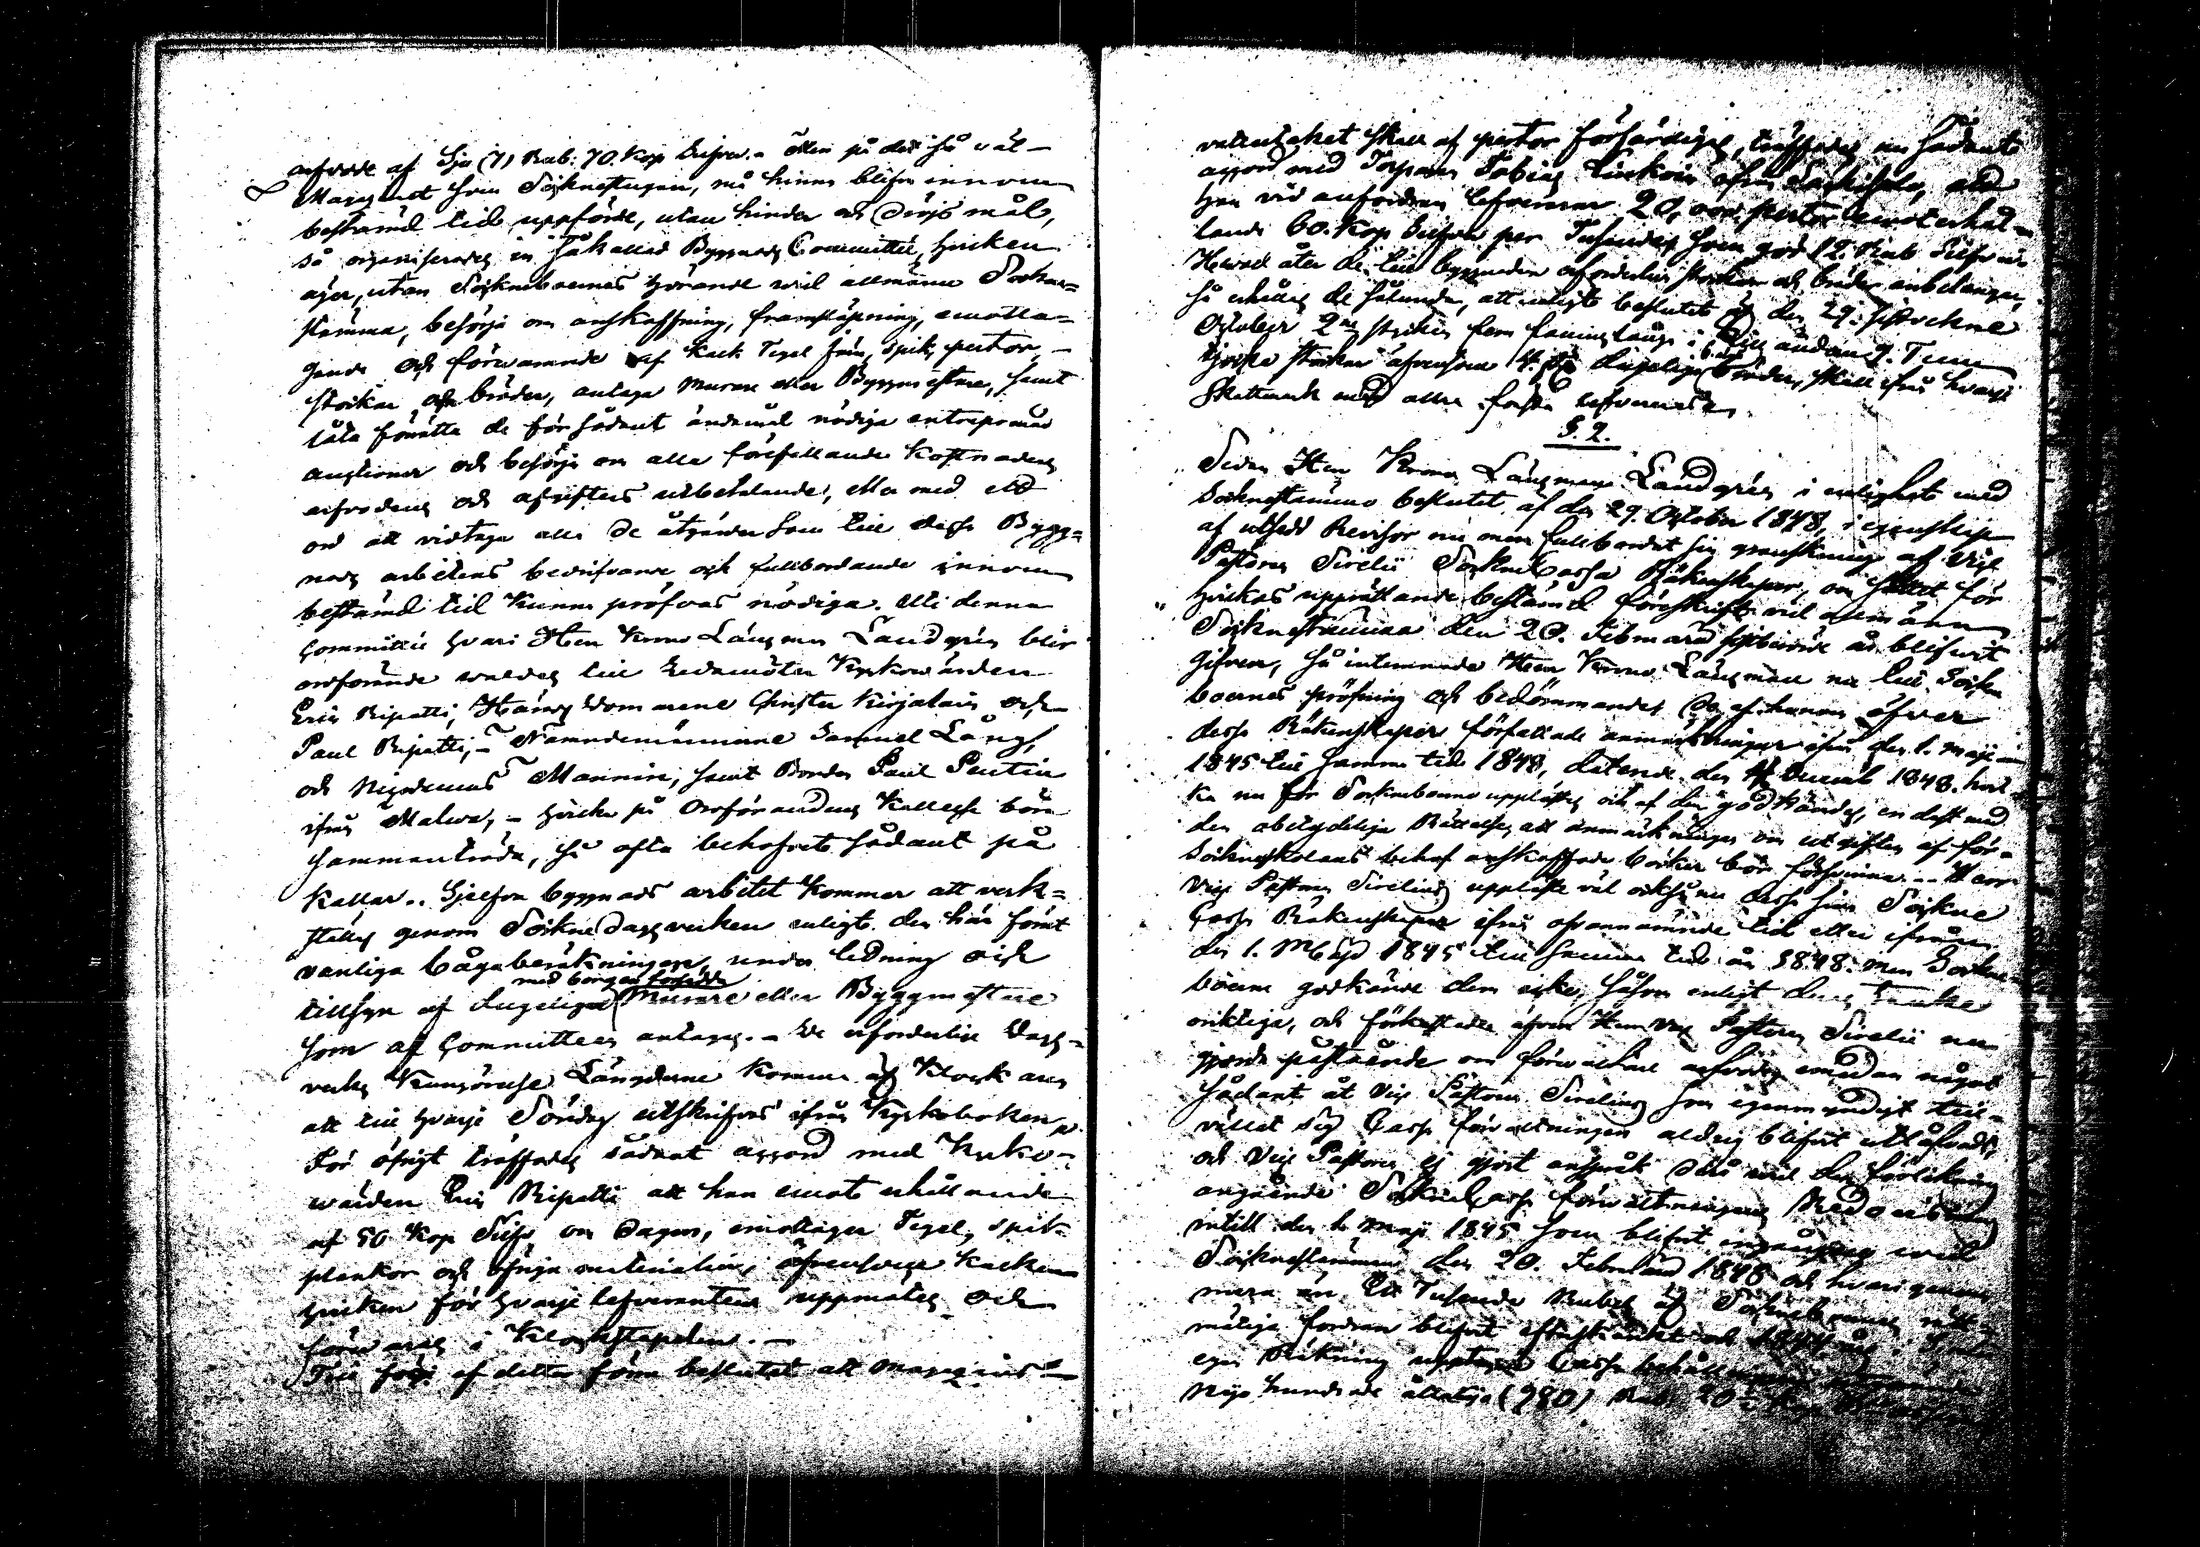 arfvode af Sju (7) Rub: 70. Kop Silfver. - Men på det så väl
Magazinet som Sockenstugan, må hinna blifva innom
bestämd tid uppförde, utan hinder och dröjs mål,
så organiserades en så kallad Byggnads Committé, hvilken
äger, utan Sockneboernes hörande vid allmänna Sockne=
stämma, besörja om anskaffning, framsläpning, emotta=
gande och förvarande af Kalk Tegel järn, spik, pertor, -
stockar, och bräder, antaga Murare eller Byggmästare, samt
låta förrätta de för sådant ändamål nödiga entreprenad
auctioner och besörja om alla förefallande Kostnaders
arfvodens och afgifters utbetalande, eller med ett
ord att vidtaga alla de åtgärder som till dessa Bygg=
nads arbetens bedrifvande och fullbordande innom
bestämd tid kunna pröfvas nödiga. Uti denna
Committé hvari Herr Krono Länsman Landgrén blir
ordförande valdes till Ledamöter Kyrkovärden
Eric Ripatti, Härads domarene Christer Kirjalain och
Paul Ripatti, - Nämndemännerne Samuel Lång,
och Nicodemus Mannin, samt Bonden Paul Pentin
ifrån Malwa, - hvilka på Ordförandens Kallelse böra
sammanträda, så ofta behofvet sådant på
kallar.. Sjelfva byggnads arbetet kommer att verk=
ställas genom Sockne Dagsverken enligt den här förut
vanliga bågaberäkningen, under ledning och
med borgen försedde
tillsyn af dugelige Murare eller Byggmästare
som af Committeen antages. - De erforderlige Dags=
verks Kungörelse Längderne kommer af Klockaren
att till hvarje Söndag utskrifvas ifrån Kyrkoboken
För öfrigt träffades sådant accord med Kyrko=
wärden Eric Ripatti att han emot erhållande
af 50 Kop Silfver om Dagen, emottager Tegel, spik
plankor och öfriga materialier, äfvensom Kalken
hvilken för hvarje lefveranteur uppmätes och
förvaras i Klockstapeln. -
Till följe af detta förra beslutet att Magazins=
taket skall af pertor förfärdigas, träffades nu sådant
accord med Torparen Tobias ifrån att
han vid anfordran lefvererar 20,000 pertor emot erhål=
lande 60. Kop Silfver per Tusendet som gör 12. Rub Silfver
Hvad åter de till byggnaden erforderlige stockar och bräder anbelangar,
så erhålles de sålunda, att enligt beslutet af den 29. sistvekne
October 2ne stycken fem famns långe i lill ändan 9. Tum
tjocka stockar äfvensom 4. dugelige bräder, skall ifrån hvarje
Skattmark med allra första lefvereras.
§. 2.
Sedan Herr Krono Länsman Landgrén i enlighet med
Sockenstämmo beslutet af den 29. October 1848, i egenskap
af utsedd Revisor nu mera fullbordat sin granskning af Vice
Pastoren Sirelii Sockne Cassa Räkenskaper, om sättet för
hvilkas upprättande bestämd föreskrift vid allmänn
Sockenstämma den 20. Februarii sistledne år blifvit
gifven, så inlemnade Herr Krono Länsman nu till Socken
boernes pröfning och bedömmandes de af honom öfver
dessa Räkenskaper författade anmärkningar ifrån den 1. Maji
1845 till samma tid 1848, daterade den Decemb 1848. hvil=
ka nu för Socknboerne upplästes och af dem godkändes, endast med
den obetydeliga Rättelse, att anmärkningen om utgiften af för
Sockneskolans behof anskaffade böcker bör försvinna. - Herr
Vice Pastoren Sirelius uppläste väl också nu dessa sina Sockne
Cassa Räkenskaper ifrån ofvannämnde tid eller ifrån
den 1. Maji 1845 till samma tid år 1848. men Sockne
boerne godkände dem icke, såsom enligt deras tanke
oriktiga, och förkastade äfven Herr Vice Pastoren Sirelii nu
gjorda påstående om förvaltare arfvode, emedan något
sådant åt Vice Pastoren Sirelius som egenmyndigt till=
vällat sig Cassa förvaltningen aldrig blifvit utlåfvadt,
och Vice Pastoren ej gjort anspråk derå vid den förlikning
angående Sockne Cassa förvaltningens Redovisning
intill den 1. Maji 1845 som blifvit ingången vid
Sockenstämman den 20. Februarii 1848 och hvarigenom
mera än Ett Tusende Rubel af Sockneboernes rätt=
mätige fordran blifvit efterskänkt och
egen Räkning upptagne Cassa behållningen
Nijo hundrade åttatijo (980) Rub. 20